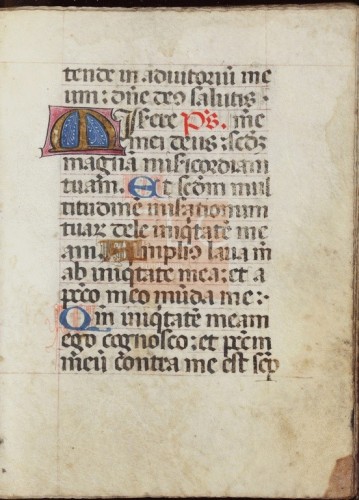 tende in adiutoriū me
um: dn̄e deo salutis:
Miſere Ps. me
mei deus: scd̄z
magnā miſicordiam
tuam. Et scd̄m mul
titudinē miſationum
tuar̄ dele iniq̄tatē me
am Amplio laua m̄
ab iniq̄tate mea: et a
pc̄co meo mūda me:
Qm̄ iniq̄tatē meam
ego cognosco: et pc̄m
meū contra me est sēp